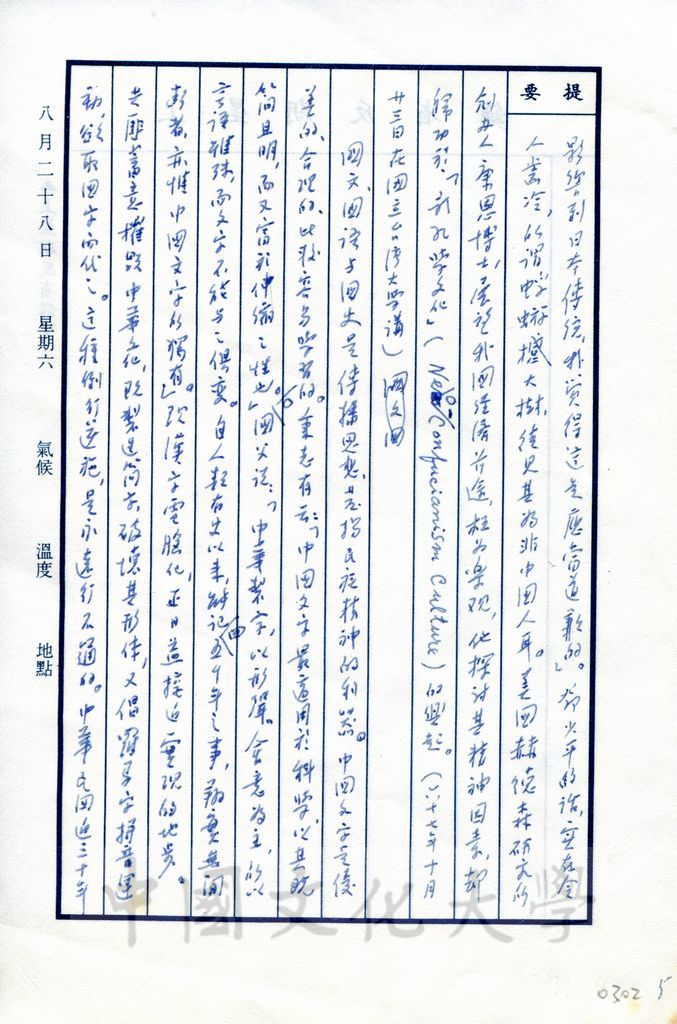 提要
影響到日本傳統，我覺得這是應當道歉的。」鄧小平的話，實在令
人齒冷，所謂蚍蜉撼大樹，徒見其為非中國人耳。美國赫德森研究所
創辦人康恩博士，展望我國經濟前途，極為樂觀，他探討其精神因素，却
歸功於「新孔學文化」（Neo-Confucianism Culture）的興起。（六十七年十月
廿三日在國立台灣大學講）
國文、國語與國史是傳播思想，發揚民族精神的利器。中國文字是優
美的、合理的、比較容易學習的。秉志有云：「中國文字最適用於科學，以其既
簡且明，而又富於伸縮之性也。」國父說：「中華製字，以形聲、會意為主，所以
言語雖殊，而文字不能與之俱變。自人類有史以來，能紀五千年之事，翔實無間
斷者，亦惟中國文字所獨有。」現漢字電腦化，正日益接近實現的地步。
共匪蓄意摧毀中華文化，既製造簡字，破壞其形体，又倡羅馬字拼音運
動，欲取國字而代之。這種倒行逆施，是永遠行不通的。中華民國近三十年
八月二十八日 星期六 氣候 溫度 地點
中國文化大學
0302 5